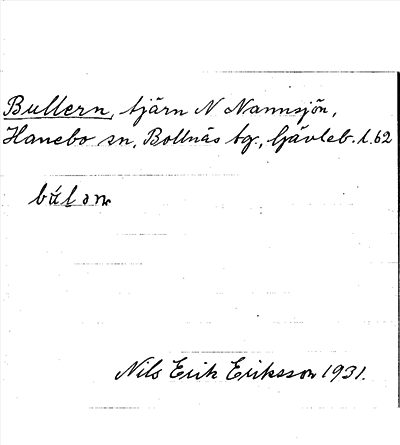 Bullern, tjärn N Nannsjön,
Hanebo sn, Bollnäs tg., Gävleb. l. 62
búlən
Nils Erik Eriksson 1931.